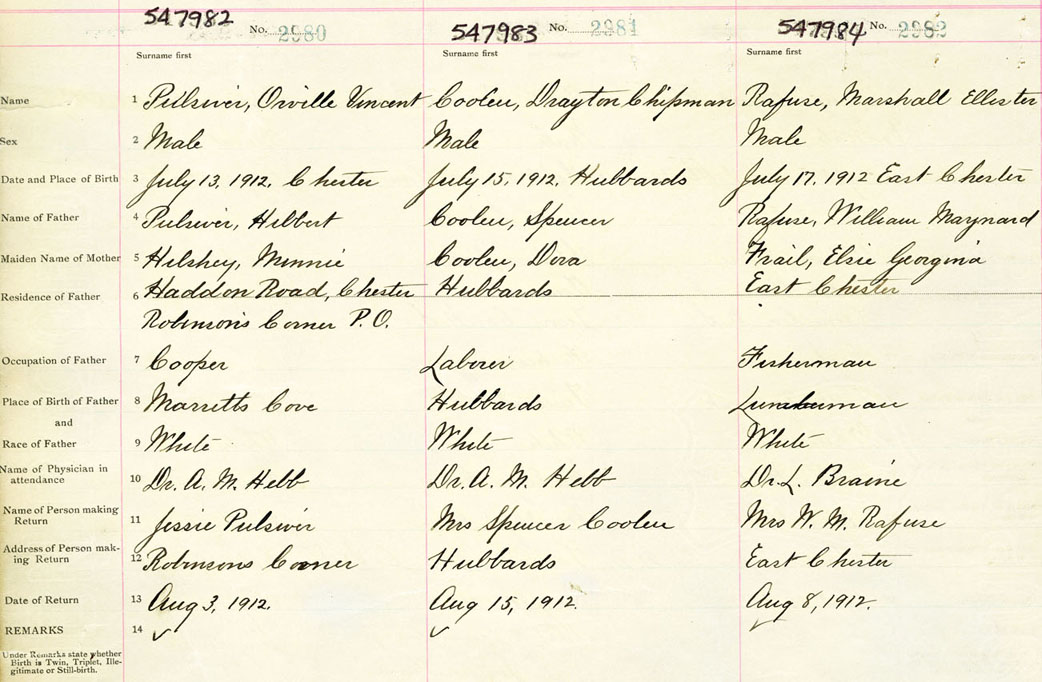 547982 No. 2980 547983 No. 2981 547984 No. 2982
Surname first Surname first Surname first
Name 1 Pulsiver, Orville Vincent Coolen, Drayton Chipman Rafuse, Marshall Ellister
Sex 2 Male Male Male
Date and Place of Birth 3 July 13, 1912, Chester July 15, 1912, Hubbards July 17, 1912 East Chester
Name of Father 4 Pulsiver, Hilbert Coolen, Spencer Rafuse, William Maynard
Maiden Name of Mother 5 Hilshey, Minnie Coolen, Dora Frail, Elsie Georgina
Residence of Father 6 Haddon Road, Chester Hubbards East Chester
Robinson's Corner P.O.
Occupation of Father 7 Cooper Laborer Fisherman
Place of Birth of Father 8 Marretts Cove Hubbards
and
Race of Father 9 White White White
Name of Physician in
attendance 10 Dr. A. M. Hebb Dr. A. M. Hebb Dr. L. Braine
Name of Person making
Return 11 Jessie Pulsiver Mrs Spencer Coolen Mrs W. M. Rafuse
Address of Person mak-
ing Return 12 Robinsons Corner Hubbards East Chester
Date of Return 13 Aug 3, 1912. Aug 15, 1912. Aug 8, 1912.
REMARKS 14 ✓ ✓ ✓
Under Remarks state whether
Birth is Twin, Triplet, Ille-
gitimate or Still-birth.